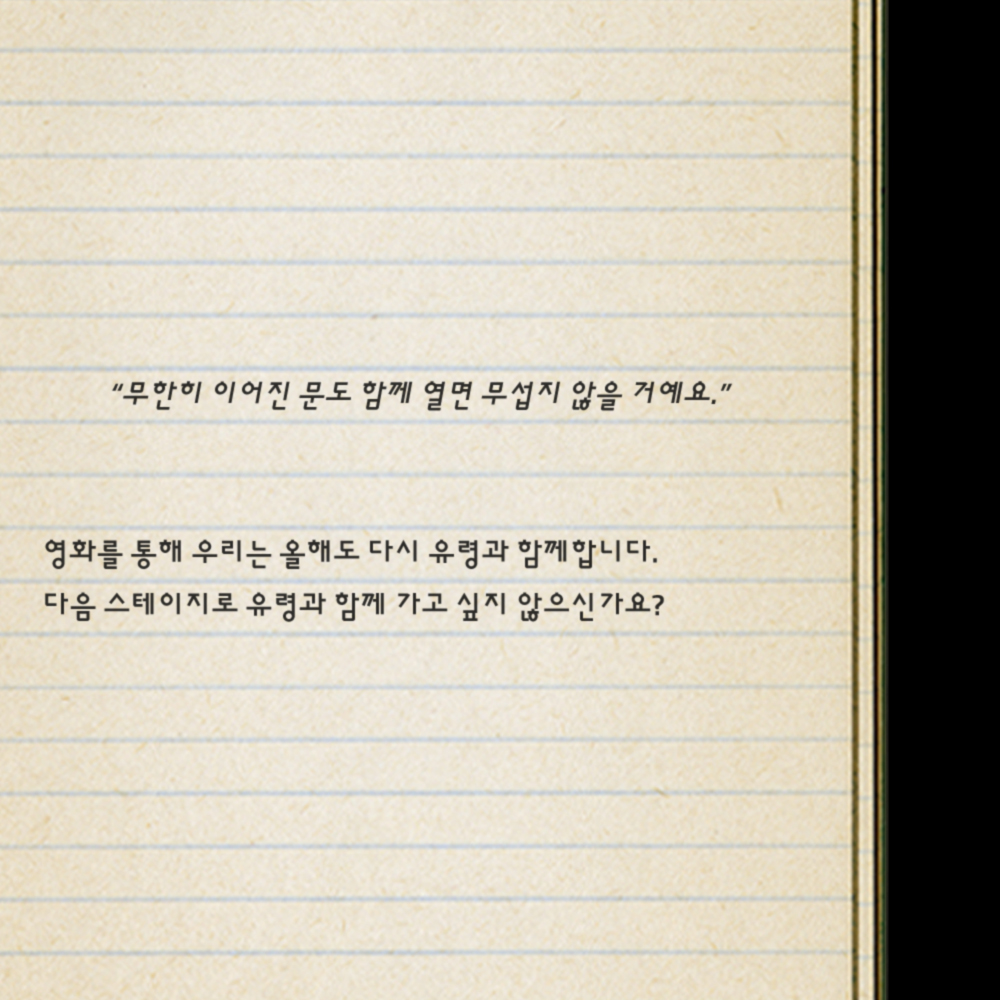 “무한히 이어진 문도 함께 열면 무섭지 않을 거예요.”
영화를 통해 우리는 올해도 다시 유령과 함께합니다.
다음 스테이지로 유령과 함께 가고 싶지 않으신가요?